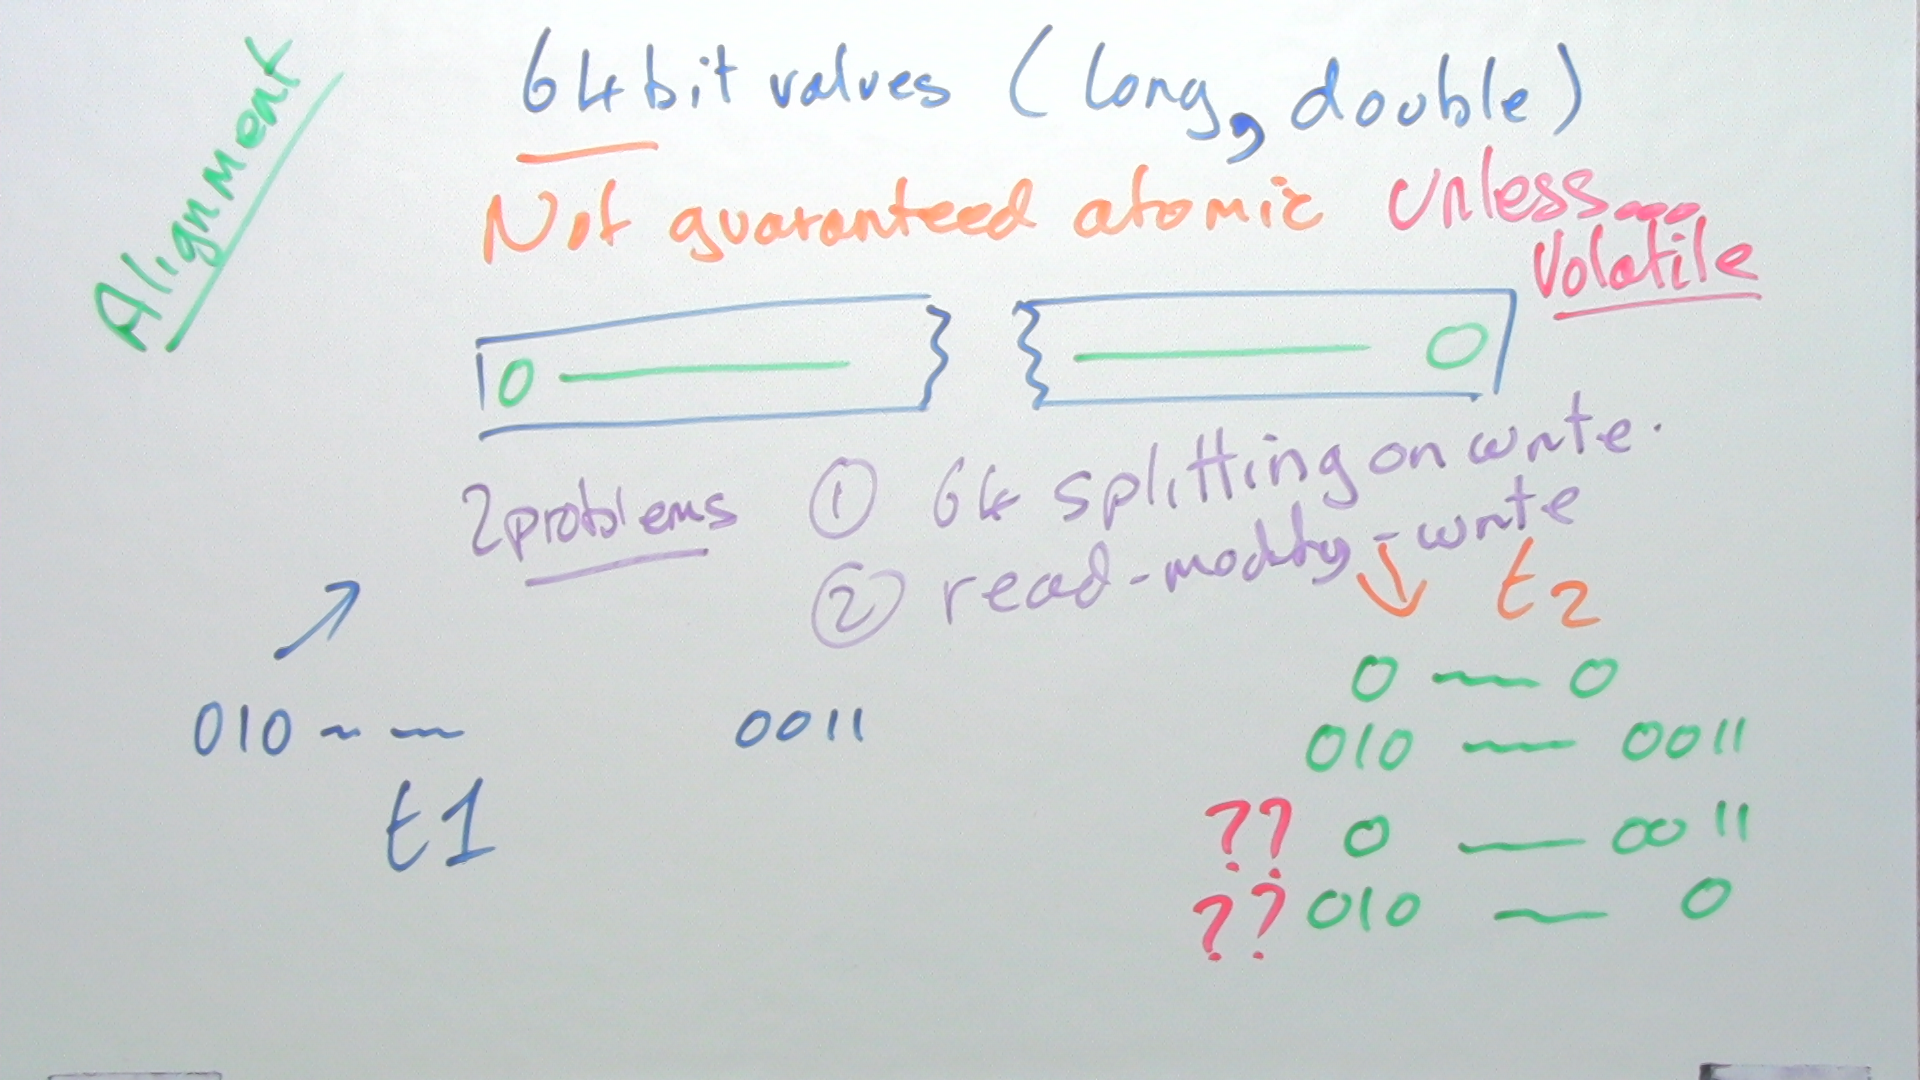 Alignment
64bit values (long, double)
Not guaranteed atomic unless...
Volatile
0 0
2 problems ① 64 splitting on write.
② read-modify-write
t2
0 — 0
010 — — 0011
010 — 0011
t1
?? 0 — 0011
?? 010 — 0